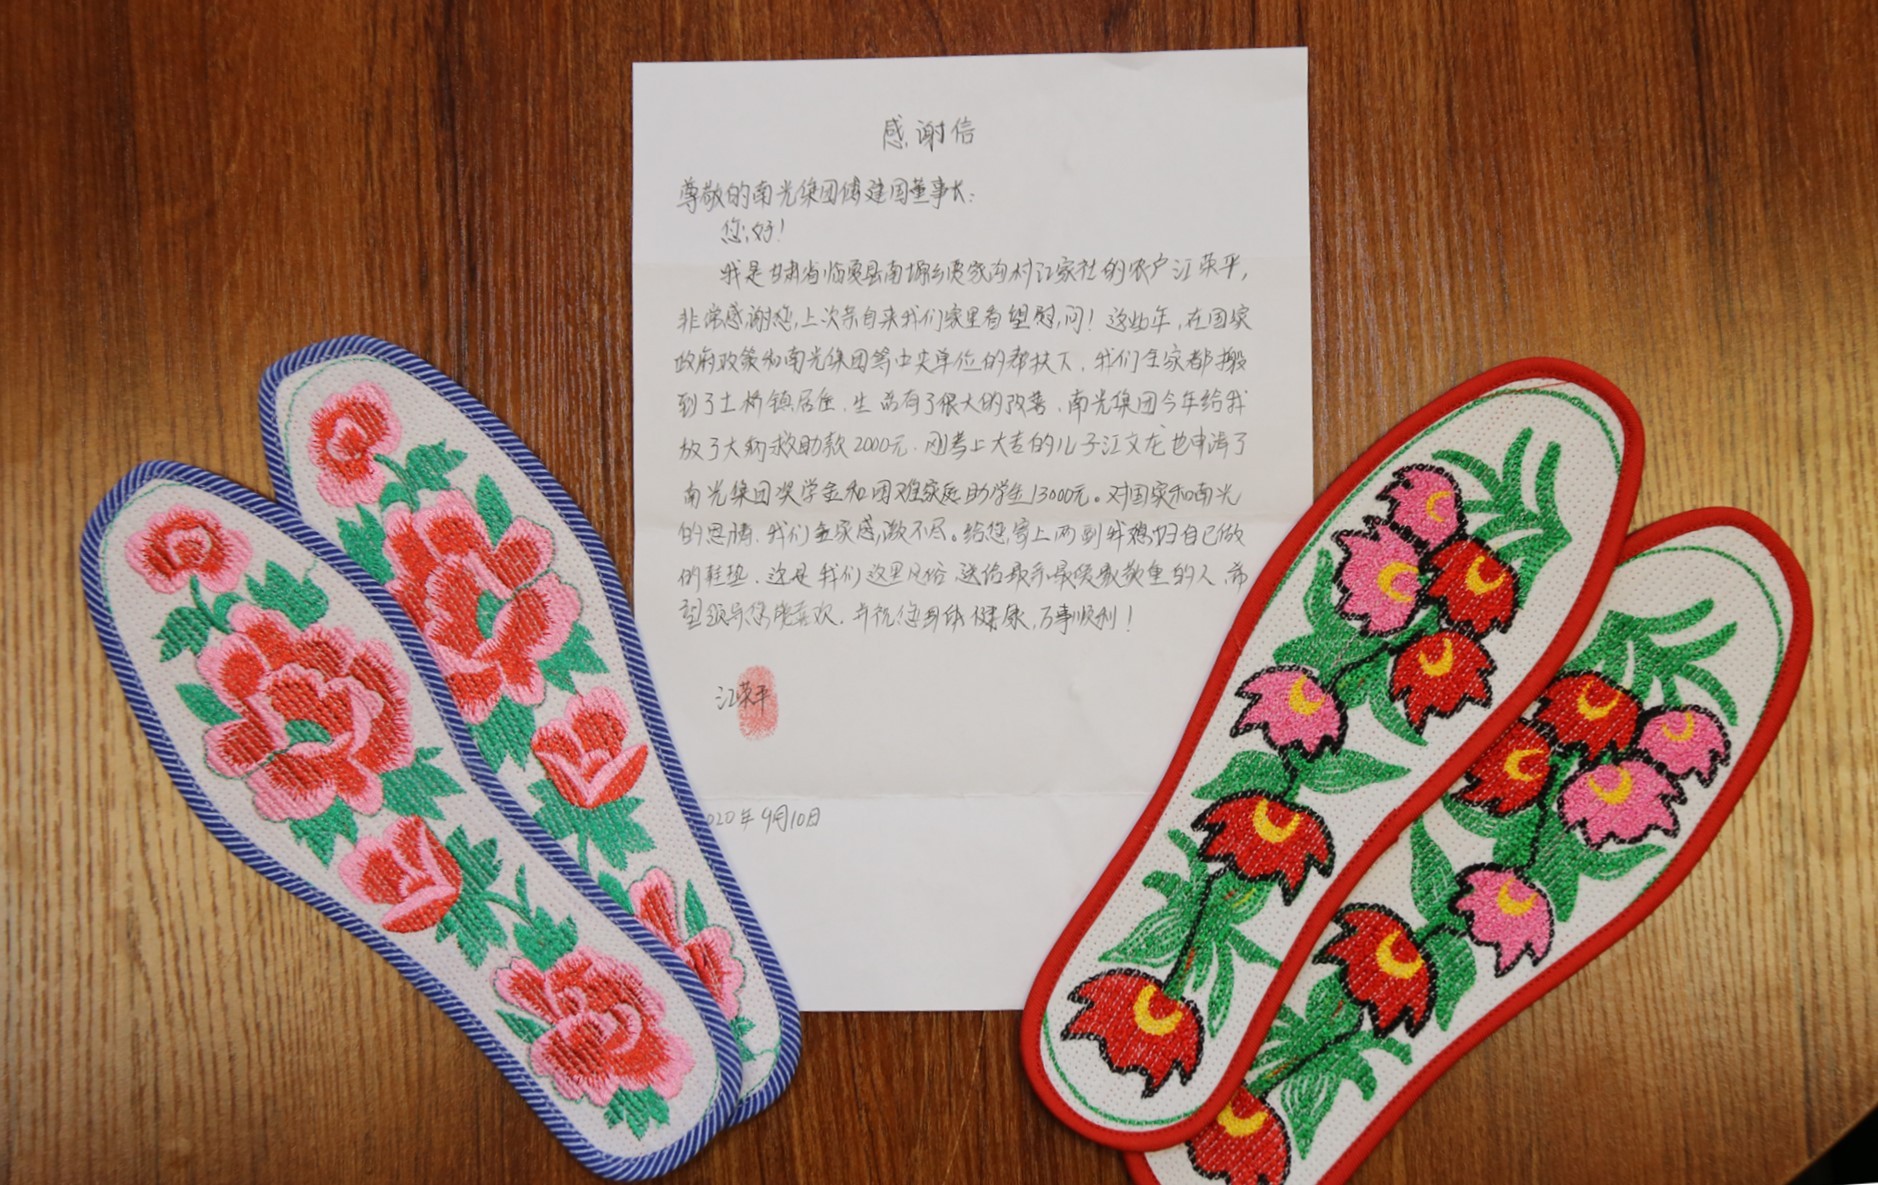 感谢信
尊敬的南光集团傅建国董事长:
您好!
我是甘肃省临夏县南塬乡贾家沟村江家社的农户江荣平,
非常感谢您,上次亲自来我们家里看望慰问!这些年,在国家
政府政策和南光集团等中央单位的帮扶下,我们全家都搬
到了土桥镇居住,生活有了很大的改善,南光集团今年给我
放了大病救助款2000元.刚考上大专的儿子江文龙也申请了
南光集团奖学金和困难家庭助学金13000元。对国家和南光
的恩情,我们全家感激不尽。给您寄上两到我媳妇自己做
的鞋垫,这是我们这里风俗,送给最亲最受敬重的人,希
望领导您能喜欢,并祝您身体健康,万事顺利!
江荣平
020年9月10日